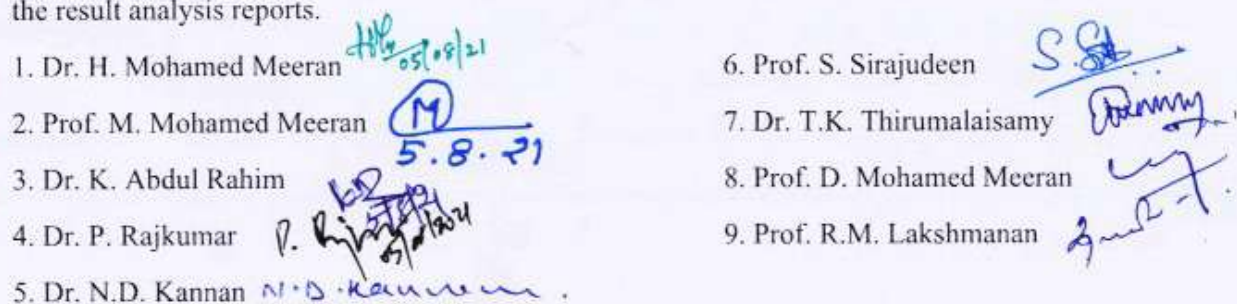 the result analysis reports.
1. Dr. H. Mohamed Meeran 05/08/21
2. Prof. M. Mohamed Meeran M
5.8.21
3. Dr. K. Abdul Rahim
4. Dr. P. Rajkumar P.
5. Dr. N.D. Kannan N.D.Kannan.
6. Prof. S. Sirajudeen
7. Dr. T.K. Thirumalaisamy
8. Prof. D. Mohamed Meeran
9. Prof. R.M. Lakshmanan